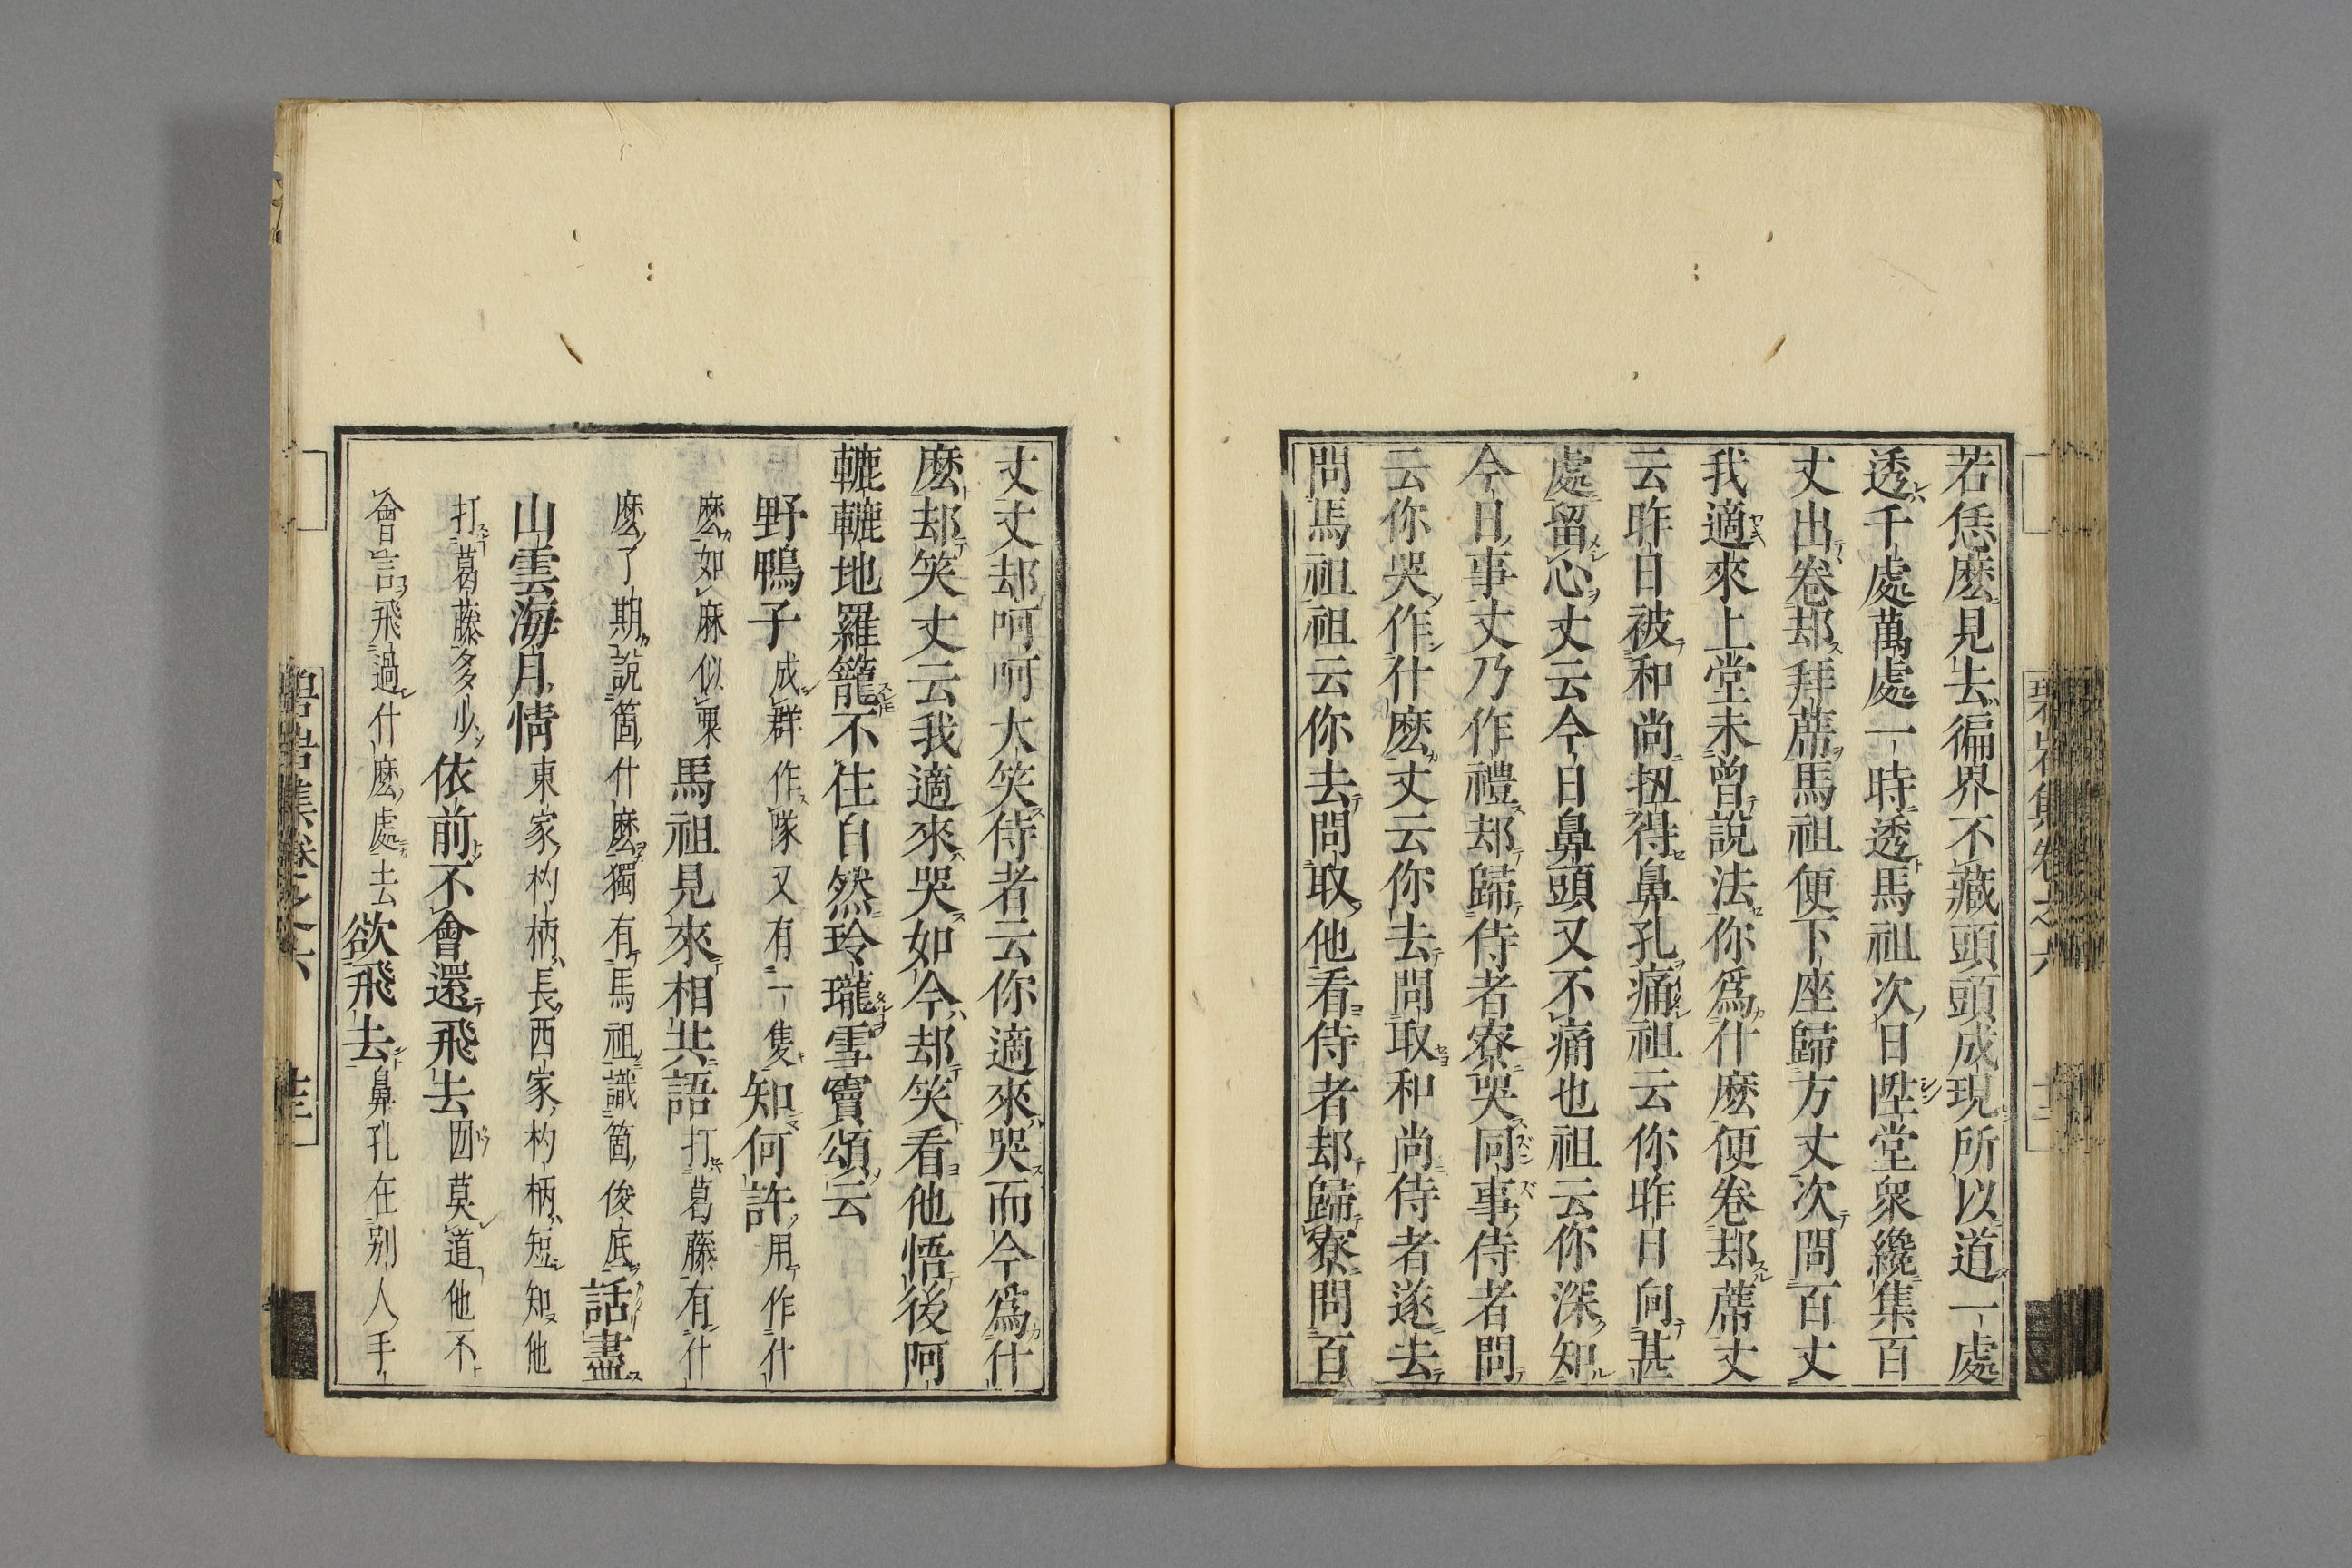 若恁麽見去徧界不藏頭頭成現所以道一處
透千處萬處一時透馬祖次日陞堂衆纔集百
丈出卷却拜蓆馬祖便下座歸方丈次問百丈
我適來上堂未曾說法你爲什麽便卷却蓆丈
云昨日被和尚扭得鼻孔痛祖云你昨日向甚
處留心丈云今日鼻頭又不痛也祖云你深知
今日事丈乃作禮却歸侍者寮哭同事侍者問
云你哭作什麽丈云你去問取和尚侍者遂去
問馬祖祖云你去問取他看侍者却歸寮問百
丈丈却呵呵大笑侍者云你適來哭而今爲什
麽却笑丈云我適來哭如今却笑看他悟後阿
轆轆地羅籠不住自然玲瓏雪竇頌云
野鴨子成群作隊又有一隻知何許用作什
麽如麻似粟馬祖見來相共語打葛藤有什
麽了期說箇什麽獨有馬祖識箇俊底話盡
山雲海月情東家杓柄長西家杓柄短知他
打葛藤多少依前不會還飛去㘞莫道他不
會言飛過什麽處去欲飛去鼻孔在别人手
碧岩集卷之六